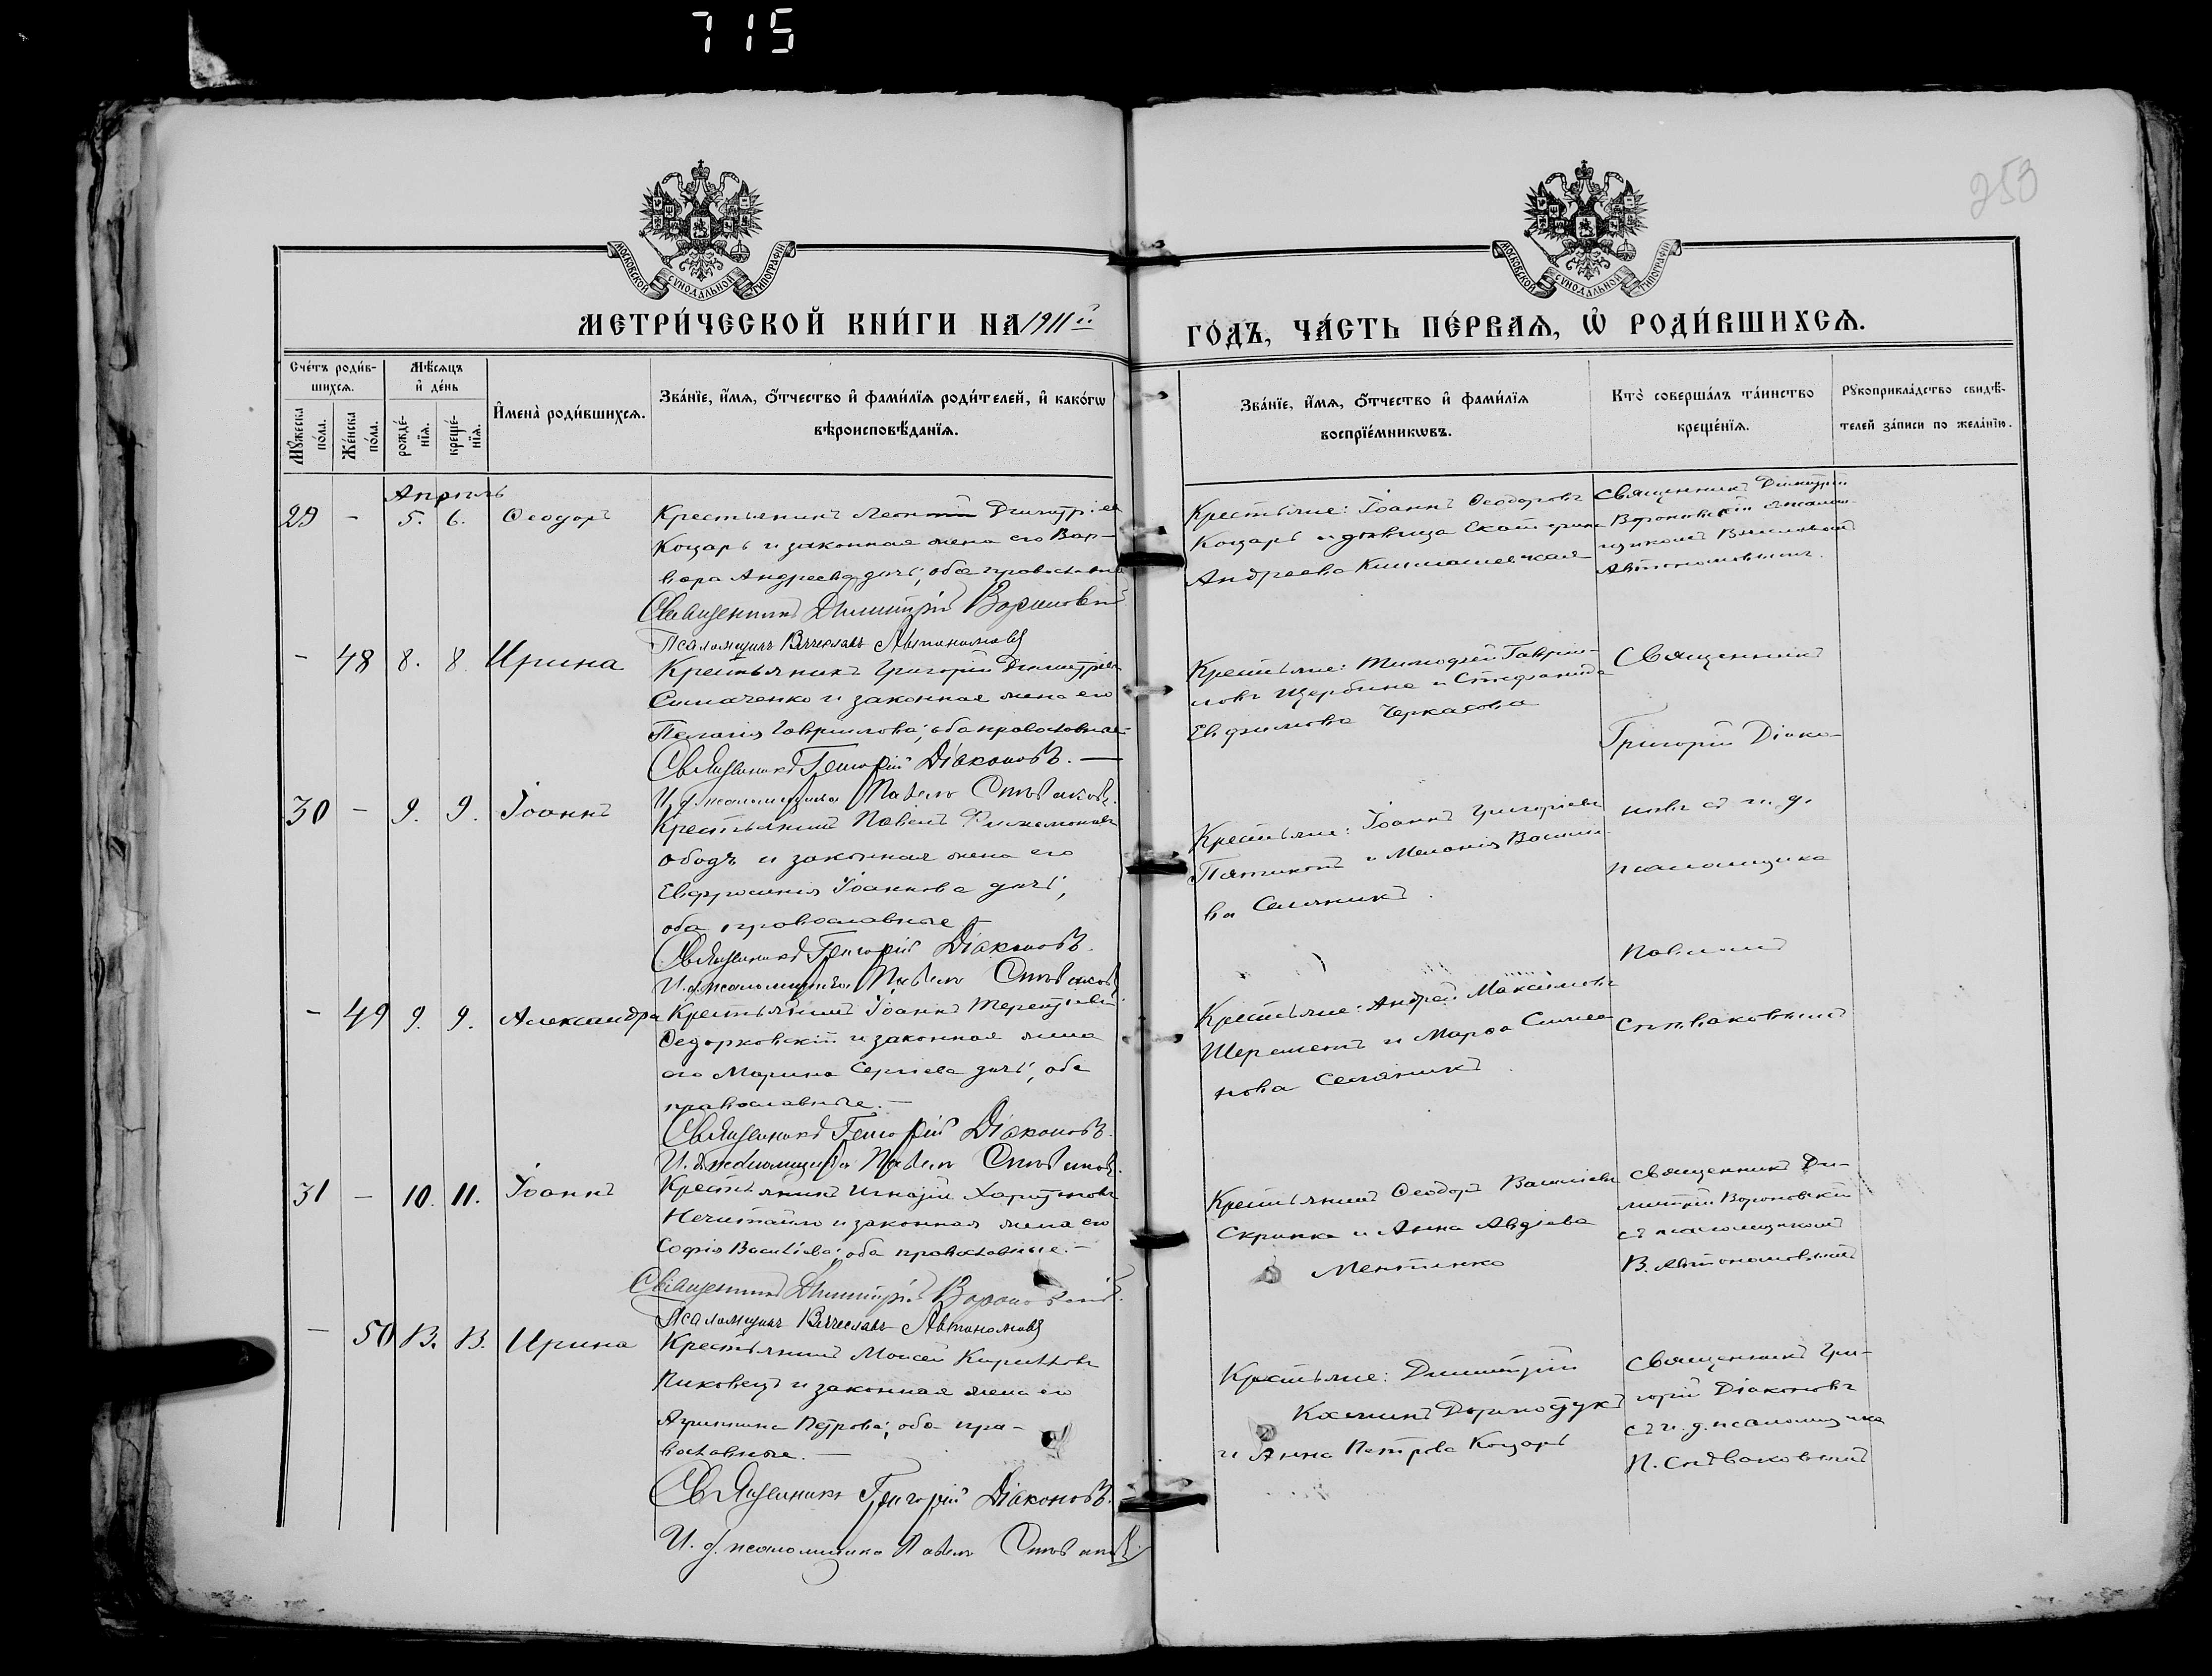 715
253
МОСКОВСКОЙ СУНОДАЛЬНОЙ ТИПОГРАФІИ
МОСКОВСКОЙ СУНОДАЛЬНОЙ ТИПОГРАФІИ
МЕТРИ́ЧЕСКОЙ КНИ́ГИ НА 1911й
ГО́ДЪ, ЧА́СТЬ ПЕ́РВАѦ, Ѡ҆ РОДИ́ВШИХСѦ.
Сче́тъ роди́в-
шихсѧ.
Мѣ́сѧцъ
и҆ де́нь
Мꙋ́жеска
по́ла.
Же́нска
по́ла.
рожде́-
нїѧ.
креще́-
нїѧ.
И҆мена̀ роди́вшихсѧ.
Зва́нїе, и҆́мѧ, ѻ҆́тчество и҆ фами́лїѧ роди́телей, и҆ како́гѡ
вѣроисповѣ́данїѧ.
Зва́нїе, и҆́мѧ, ѻ҆́тчество и҆ фами́лїѧ
воспрїе́мникѡвъ.
Кто̀ соверша́лъ та́инство
креще́нїѧ.
Рꙋкоприкла́дство свидѣ́-
телей за́писи по жела́нїю.
Апрѣль
29 - 5. 6. Ѳеодоръ
Крестьянинъ Леонтій Димитріев
Коцарь и законная жена его Вар-
вара Андреева дочь, оба православные
Священникъ Димитрій Вороновскій
Псаломщикъ Вячеславъ Автономовъ
Крестьяне: Іоаннъ Ѳеодоровъ
Коцарь и девица Екатерина
Андреева
Священникъ Димитрій
Вороновскій
Вячеславомъ
Автономовымъ.
- 48 8. 8. Ирина
Крестьянинъ Григорій Димитріев
Симаченко и законная жена его
Пелагія Гавриилова, оба православные
Священникъ Григорій Діаконовъ. —
И. д. псаломщика Павелъ Спѣваковъ.
Крестьяне: Тимоѳей Гаврии-
ловъ Щербина и Стефанида
Евфимова Черкасова
Священникъ
Григорій Діако-
30 - 9. 9. Іоаннъ
Крестьянинъ Павелъ Филимоновъ
Ободъ и законная жена его
Евфросинія Іоаннова дочь,
оба православные
Священникъ Григорій Діаконовъ.
И. д. псаломщика Павелъ Спѣваковъ
Крестьяне: Іоаннъ Григоріевъ
и Меланія Василіе-
ва Селяникъ.
новъ съ и. д.
псаломщика
Павломъ
- 49 9. 9. Александра
Крестьянинъ Іоаннъ Терентіевъ
Ѳедорковскій и законная жена
его Марина Сергіева дочь, оба
православные. —
Священникъ Григорій Діаконовъ.
И. д. псаломщика Павелъ Спѣваковъ.
Крестьяне: Андрей Максимовъ
Шереметъ и Марѳа Симео-
нова Селяникъ.
Спѣваковымъ
31 - 10. 11. Іоаннъ
Крестьянинъ Игнатій Харитоновъ
Нечитайло и законная жена его
Софія Василіева, оба православные. —
Священникъ Димитрій Вороновскій.
Псаломщикъ Вячеславъ Автономовъ
Крестьянинъ Ѳеодоръ Василіевъ
Скрипка и Анна Авдіева
Священникъ Ди-
митрій Вороновскій
съ псаломщикомъ
В. Автономовымъ
- 50 13. 13. Ирина
Крестьянинъ Моисей Кирилловъ
Пиковецъ и законная жена его
Агрипина Петрова, оба пра-
вославные. —
Священникъ Григорій Діаконовъ.
И. д. псаломщика Павелъ Спѣваковъ.
Крестьяне: Димитрій
и Анна Петрова Коцарь
Священникъ Гри-
горій Діаконовъ
съ и. д. псаломщика
П. Спѣваковымъ